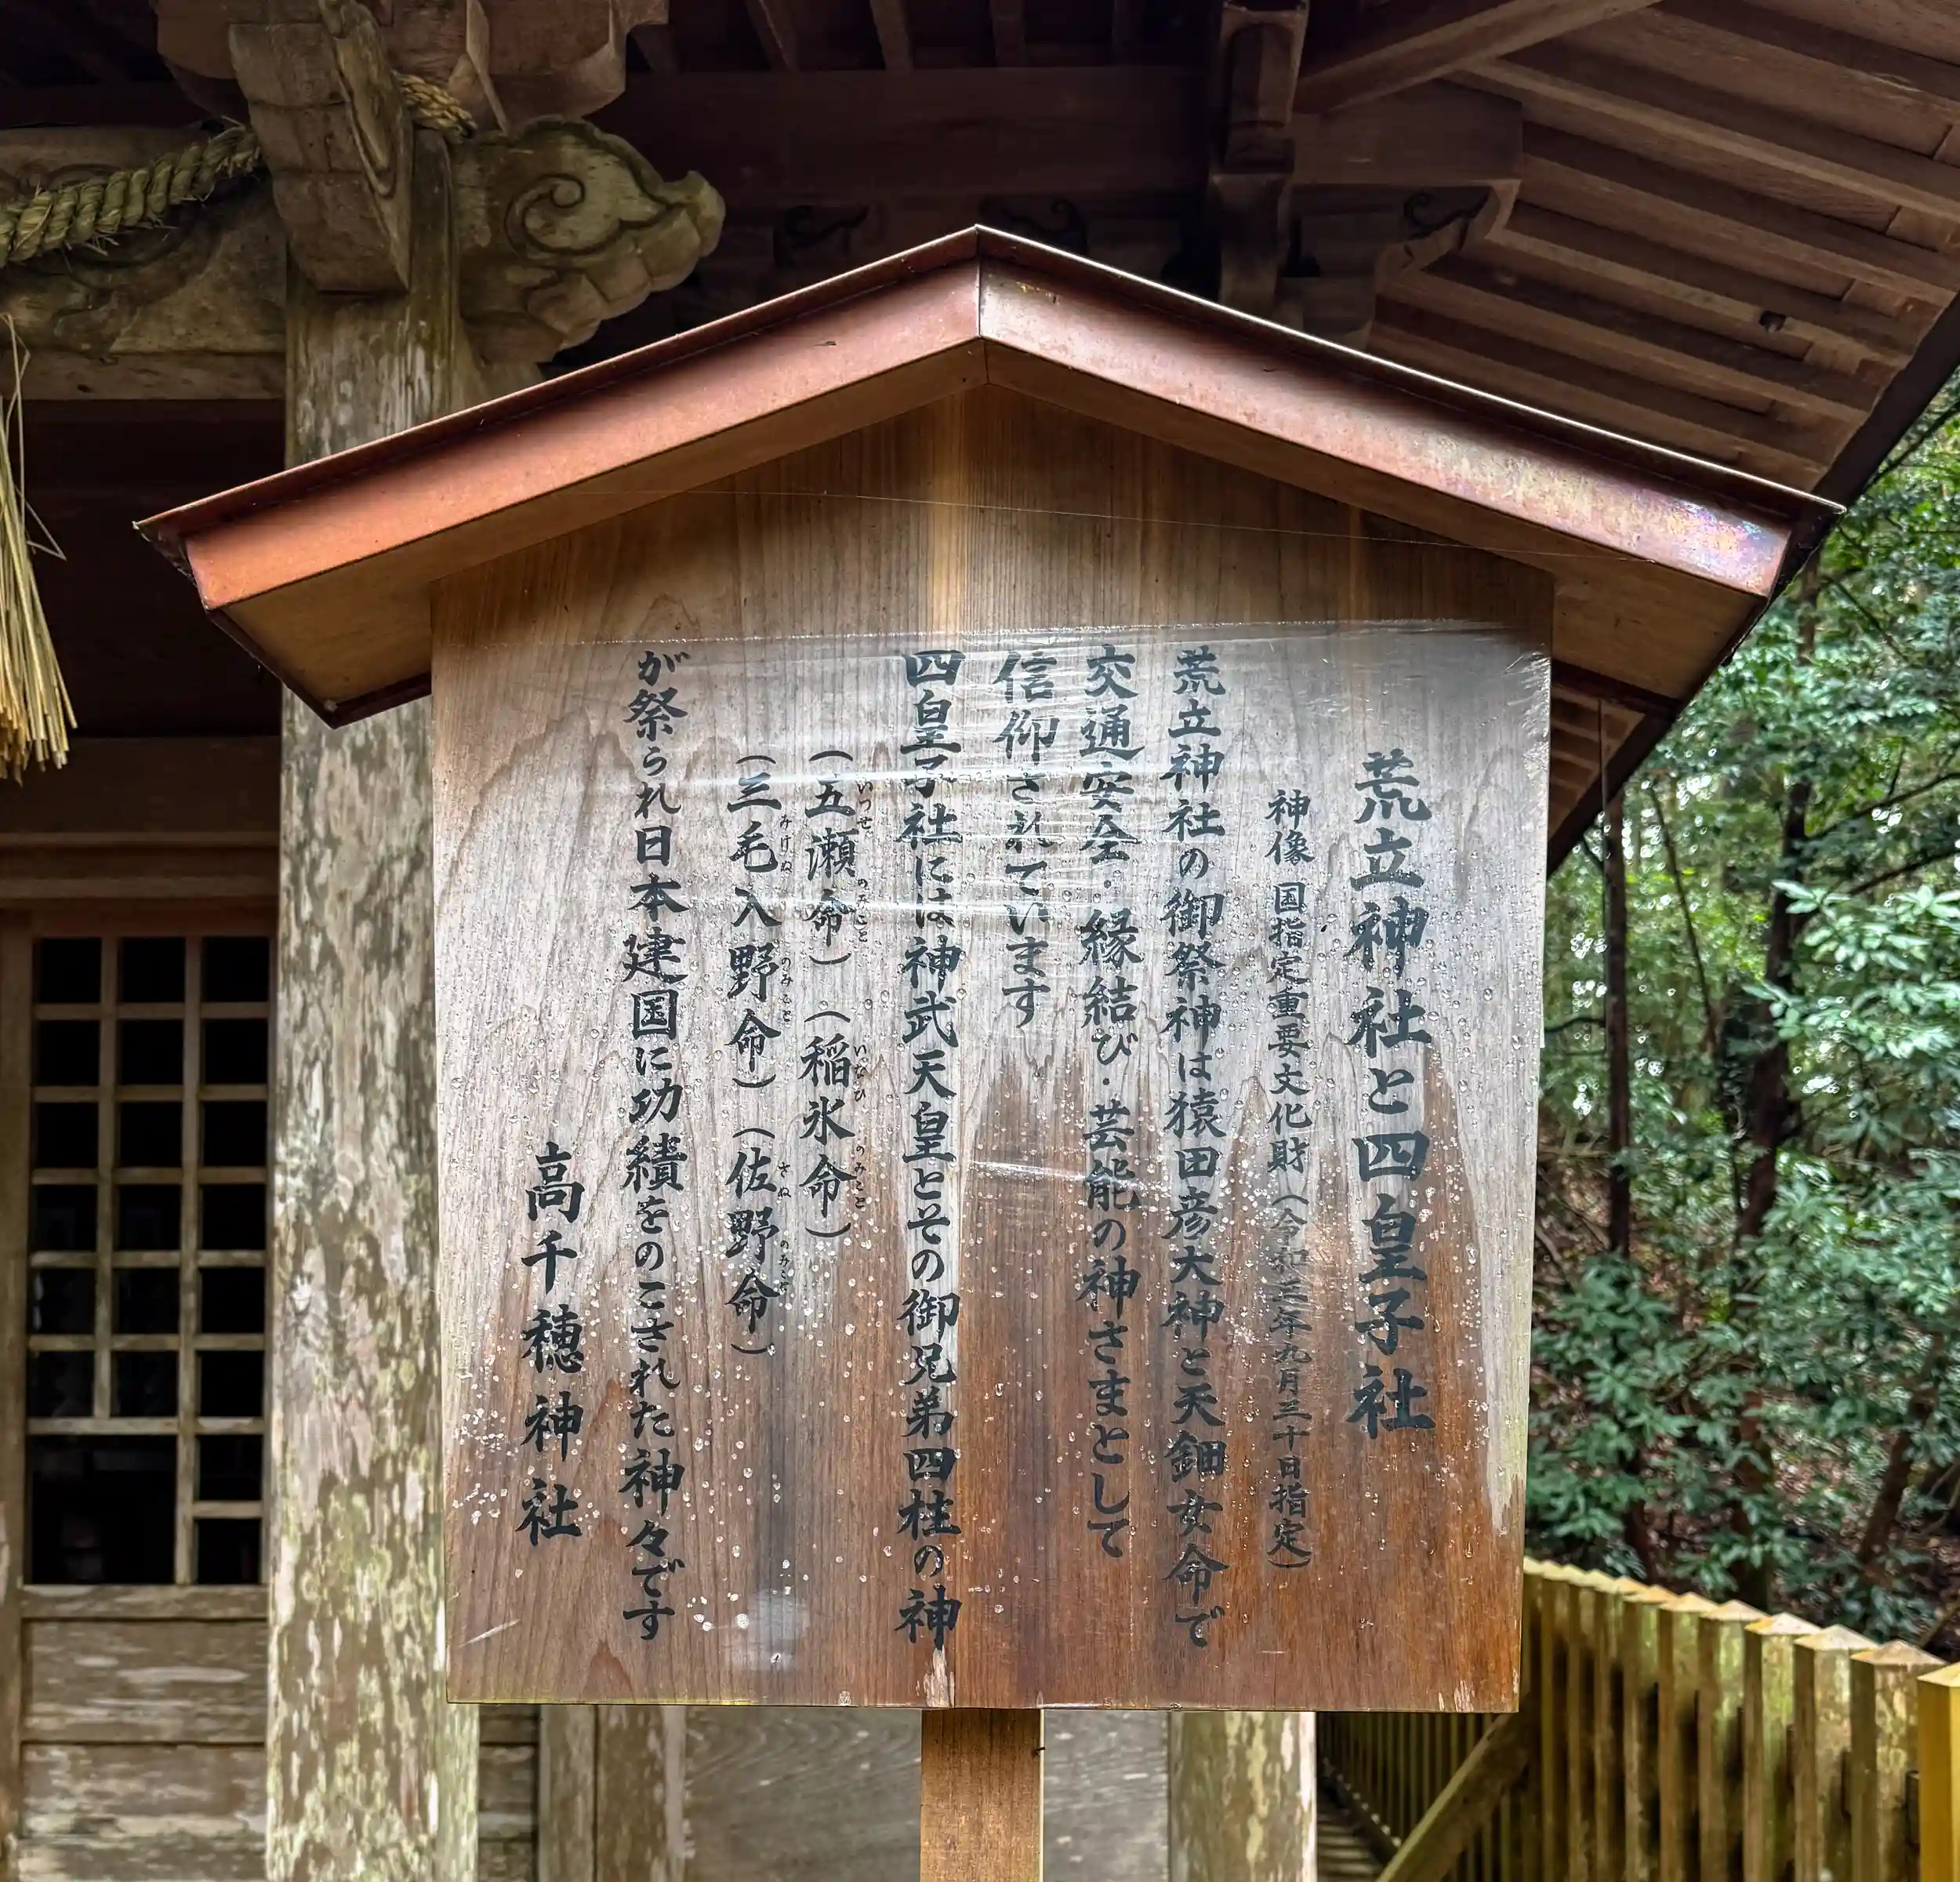 荒立神社と四皇子社
神像 国指定重要文化財（令和三年九月三十日指定）
荒立神社の御祭神は猿田彦大神と天鈿女命で
交通安全・縁結び・芸能の神さまとして
信仰されています
四皇子社には神武天皇とその御兄弟四柱の神
（五瀬命）（稲氷命）
いつせ のみこと いなひ のみこと
（三毛入野命）（佐野命）
みけぬ のみこと さぬ のみこと
が祭られ日本建国に功績をのこされた神々です
高千穂神社